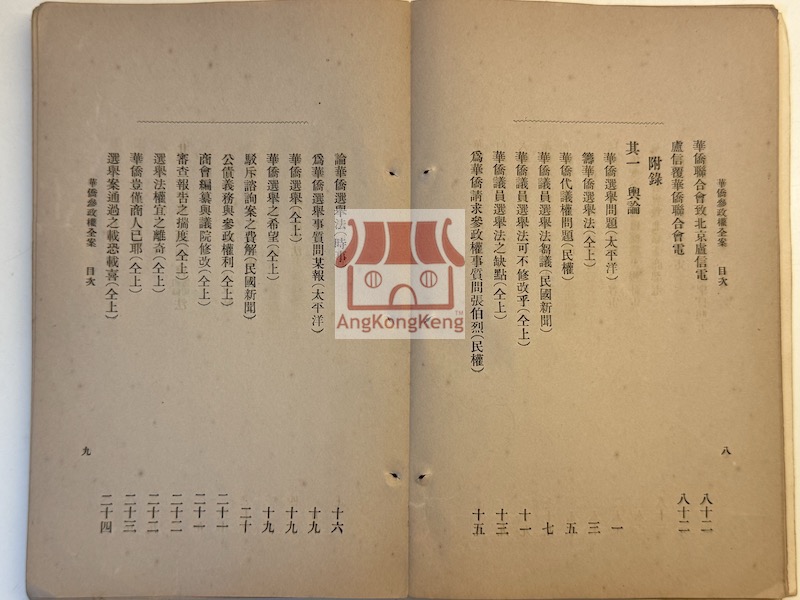 華僑參政權全案　目次
華僑聯合會致北京盧信電　八十二
盧信覆華僑聯合會電　八十二
附錄
其一　輿論
華僑選舉問題(太平洋)　一
籌華僑選舉法(仝上)　三
華僑代議權問題(民權)　五
華僑議員選舉法芻議(民國新聞)　七
華僑議員選舉法可不修改乎(仝上)　十一
華僑議員選舉法之缺點(仝上)　十三
爲華僑請求參政權事質問張伯烈(民權)　十五
八
論華僑選舉法(時事)　十六
爲華僑選舉事質問某報(太平洋)　十九
華僑選舉(仝上)　十九
華僑選舉之希望(仝上)　十九
駁斥諮詢案之費解(民國新聞)　二十
公債義務與參政權利(仝上)　二十一
商會編纂與議院修改(仝上)　二十一
審查報告之揣度(仝上)　二十二
選舉法權宜之離奇(仝上)　二十二
華僑豈僅商人已耶(仝上)　二十三
選舉案通過之載恐載喜(仝上)　二十四
華僑參政權全案　目次
九
AngKongKeng
TM